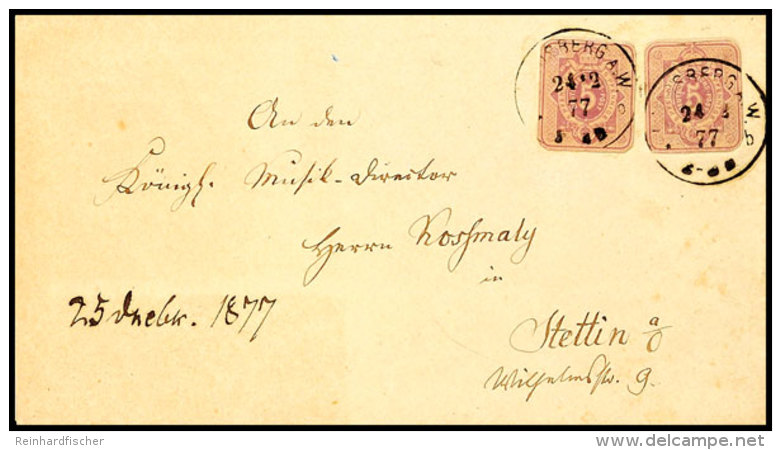 SBERG A. W.
24 12
77
5
SBERG A. W.
24
77
5
An den
Königl. Musik-Director
Herrn Kossmaly
in
25 1877
Stettin a/O
Wilhelmsstr. 9.
Reinhardfischer
delcampe.net